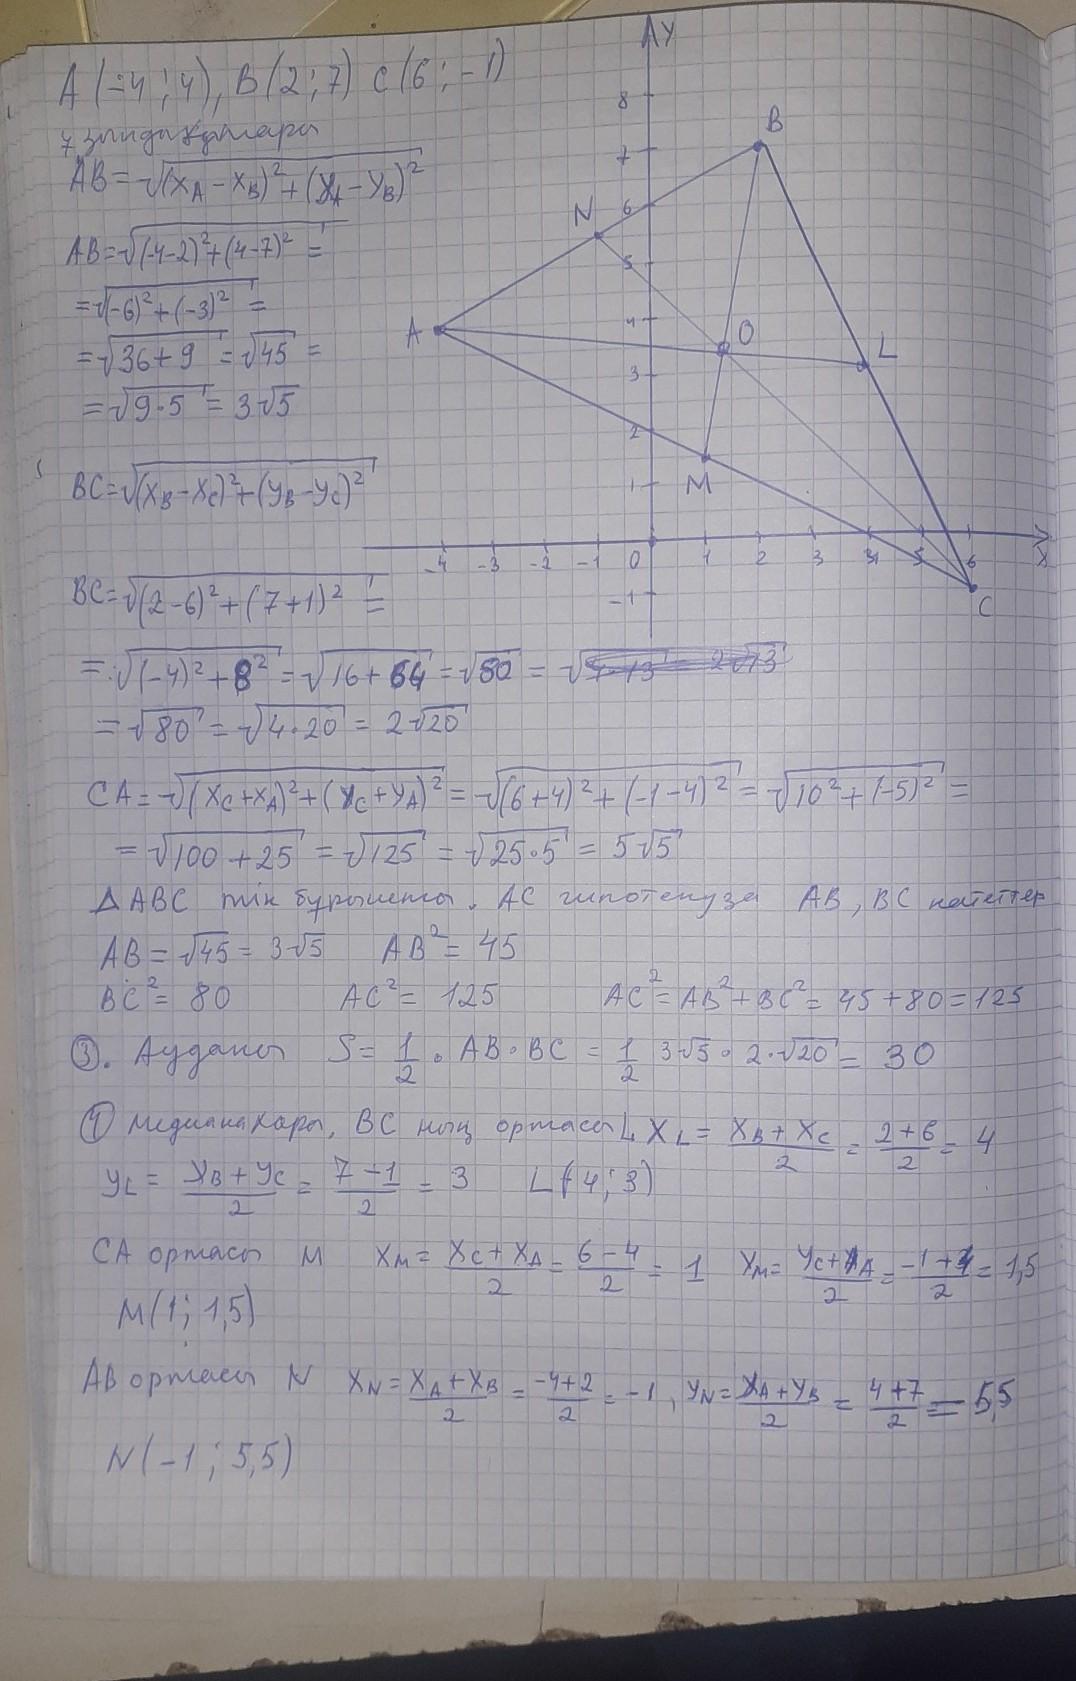 A(-4;4), B(2;7) C(6;-1)
AB=√(x_A-x_B)²+(y_A-y_B)²
AB=√(-4-2)²+(4-7)² =
=√(-6)²+(-3)² =
=√36+9 = √45 =
=√9·5 = 3√5
BC=√(x_B-x_C)²+(y_B-y_C)²
BC=√(2-6)²+(7+1)² =
=√(-4)²+8² = √16+64 = √80 = √
=√80 = √4·20 = 2√20
CA=√(x_C+x_A)²+(y_C+y_A)² = √(6+4)²+(-1-4)² = √10²+(-5)² =
=√100+25 = √125 = √25·5 = 5√5
ΔABC тік бұрышты. AC гипотенуза AB, BC катеттер
AB=√45=3√5 AB²=45
BC²=80 AC²=125 AC²=AB²+BC²=45+80=125
③. Ауданы S=1/2·AB·BC=1/2 3√5·2·√20=30
④ Медианалары, BC ның ортасы L x_L=(x_B+x_C)/2=(2+6)/2=4
y_L=(y_B+y_C)/2=(7-1)/2=3 L(4;3)
CA ортасы M x_M=(x_C+x_A)/2=(6-4)/2=1 y_M=(y_C+y_A)/2=(-1+4)/2=1,5
M(1;1,5)
AB ортасы N x_N=(x_A+x_B)/2=(-4+2)/2=-1, y_N=(y_A+y_B)/2=(4+7)/2=5,5
N(-1;5,5)
y
8
B
7
N 6
5
A 4 O L
3
2
M
1
-4 -3 -2 -1 0 1 2 3 4 5 6 x
-1 C